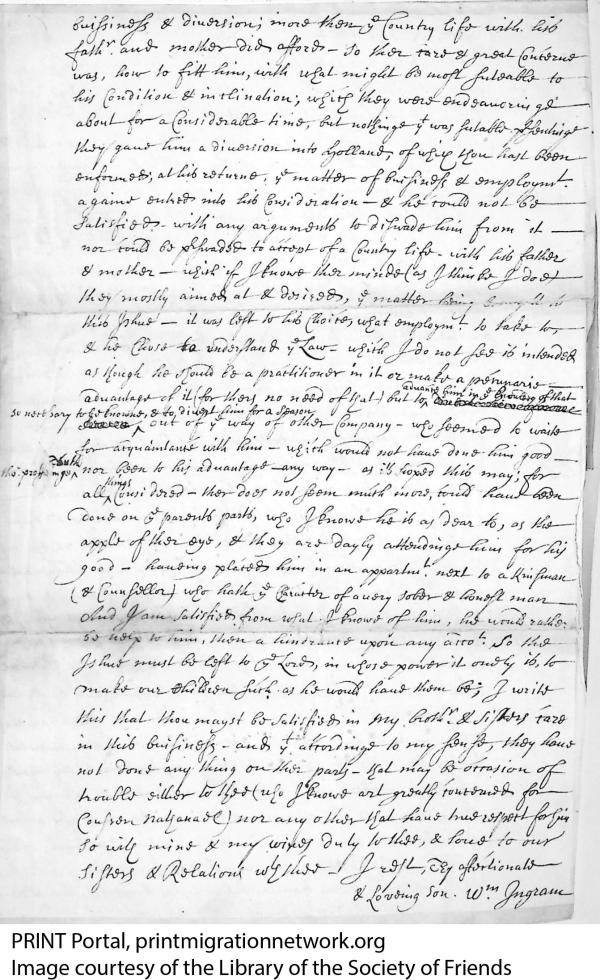 buissiness & diversion; more then ye Country life with his
fathr. and mother did afford - so ther care & great Concerne
was, how to fitt him, with what might be most suteable to
his Condition & inclination; which they were endeavoringe
about for a Considerable time, but nothinge yt was sutable
they gave him a diversion into Holland, of which thou hast been
enformed; at his returne, ye matter of buisiness & employmt.
againe entred into his Consideration - & he could not be
satisfied - with any arguments to diswade him from it -
nor could be pswaded to accept of a Country life - with his father
& mother - which if I knowe ther minde (as I thinke I doe)
they mostly aimed at & desired, ye matter being
this Ishue - it was left to his Choice, what employmt to take to,
& he Chose to understand ye Law - which I do not see is intended
as though he should be a practitioner in it or make a pecuniarie
advantage of it (for thers no need of that) but to advance him in ye knowledg of that
so necessary to be knowne, & to divert him for a season
out of ye way of other Company - who seemed to waite
for acquaintance with him - which would not have done him good -
nor been to his advantage any way - as is hoped this may; for
all things Considered - ther does not seem much more, could have been
done on ye parents parts, who I knowe he is as dear to, as the
apple of ther eye, & they are dayly attendinge him for his
good - haveing placed him in an appartmt. next to a Kinsman
(& Counsellor) who hath ye Caracter of a very sober & honest man
And I am satisfied from what I knowe of him, he would rather
be help to him, then a hindrance upon any accot. So the
Ishue must be left to ye Lord, in whose power it onely is, to
make our Children such as he would have them be; I write
this that thou mayst be satisfied in my brothr. & sisters care
in this buisiness - and yt accordinge to my sense, they have
not done any thing on ther parts - that may be occasion of
trouble either to thee (who I knowe art greatly concerned for
Cousen Nathanael) nor any other that have true respect for him
So with mine & my wives duty to thee, & love to our
Sisters & Relations wth thee - I rest, Thy affectionate
& Loveing Son. Wm Ingram
PRINT Portal, printmigrationnetwork.org
Image courtesy of the Library of the Society of Friends